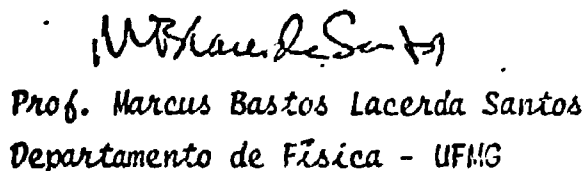 Prof. Marcus Bastos Lacerda Santos
Departamento de Física - UFMG